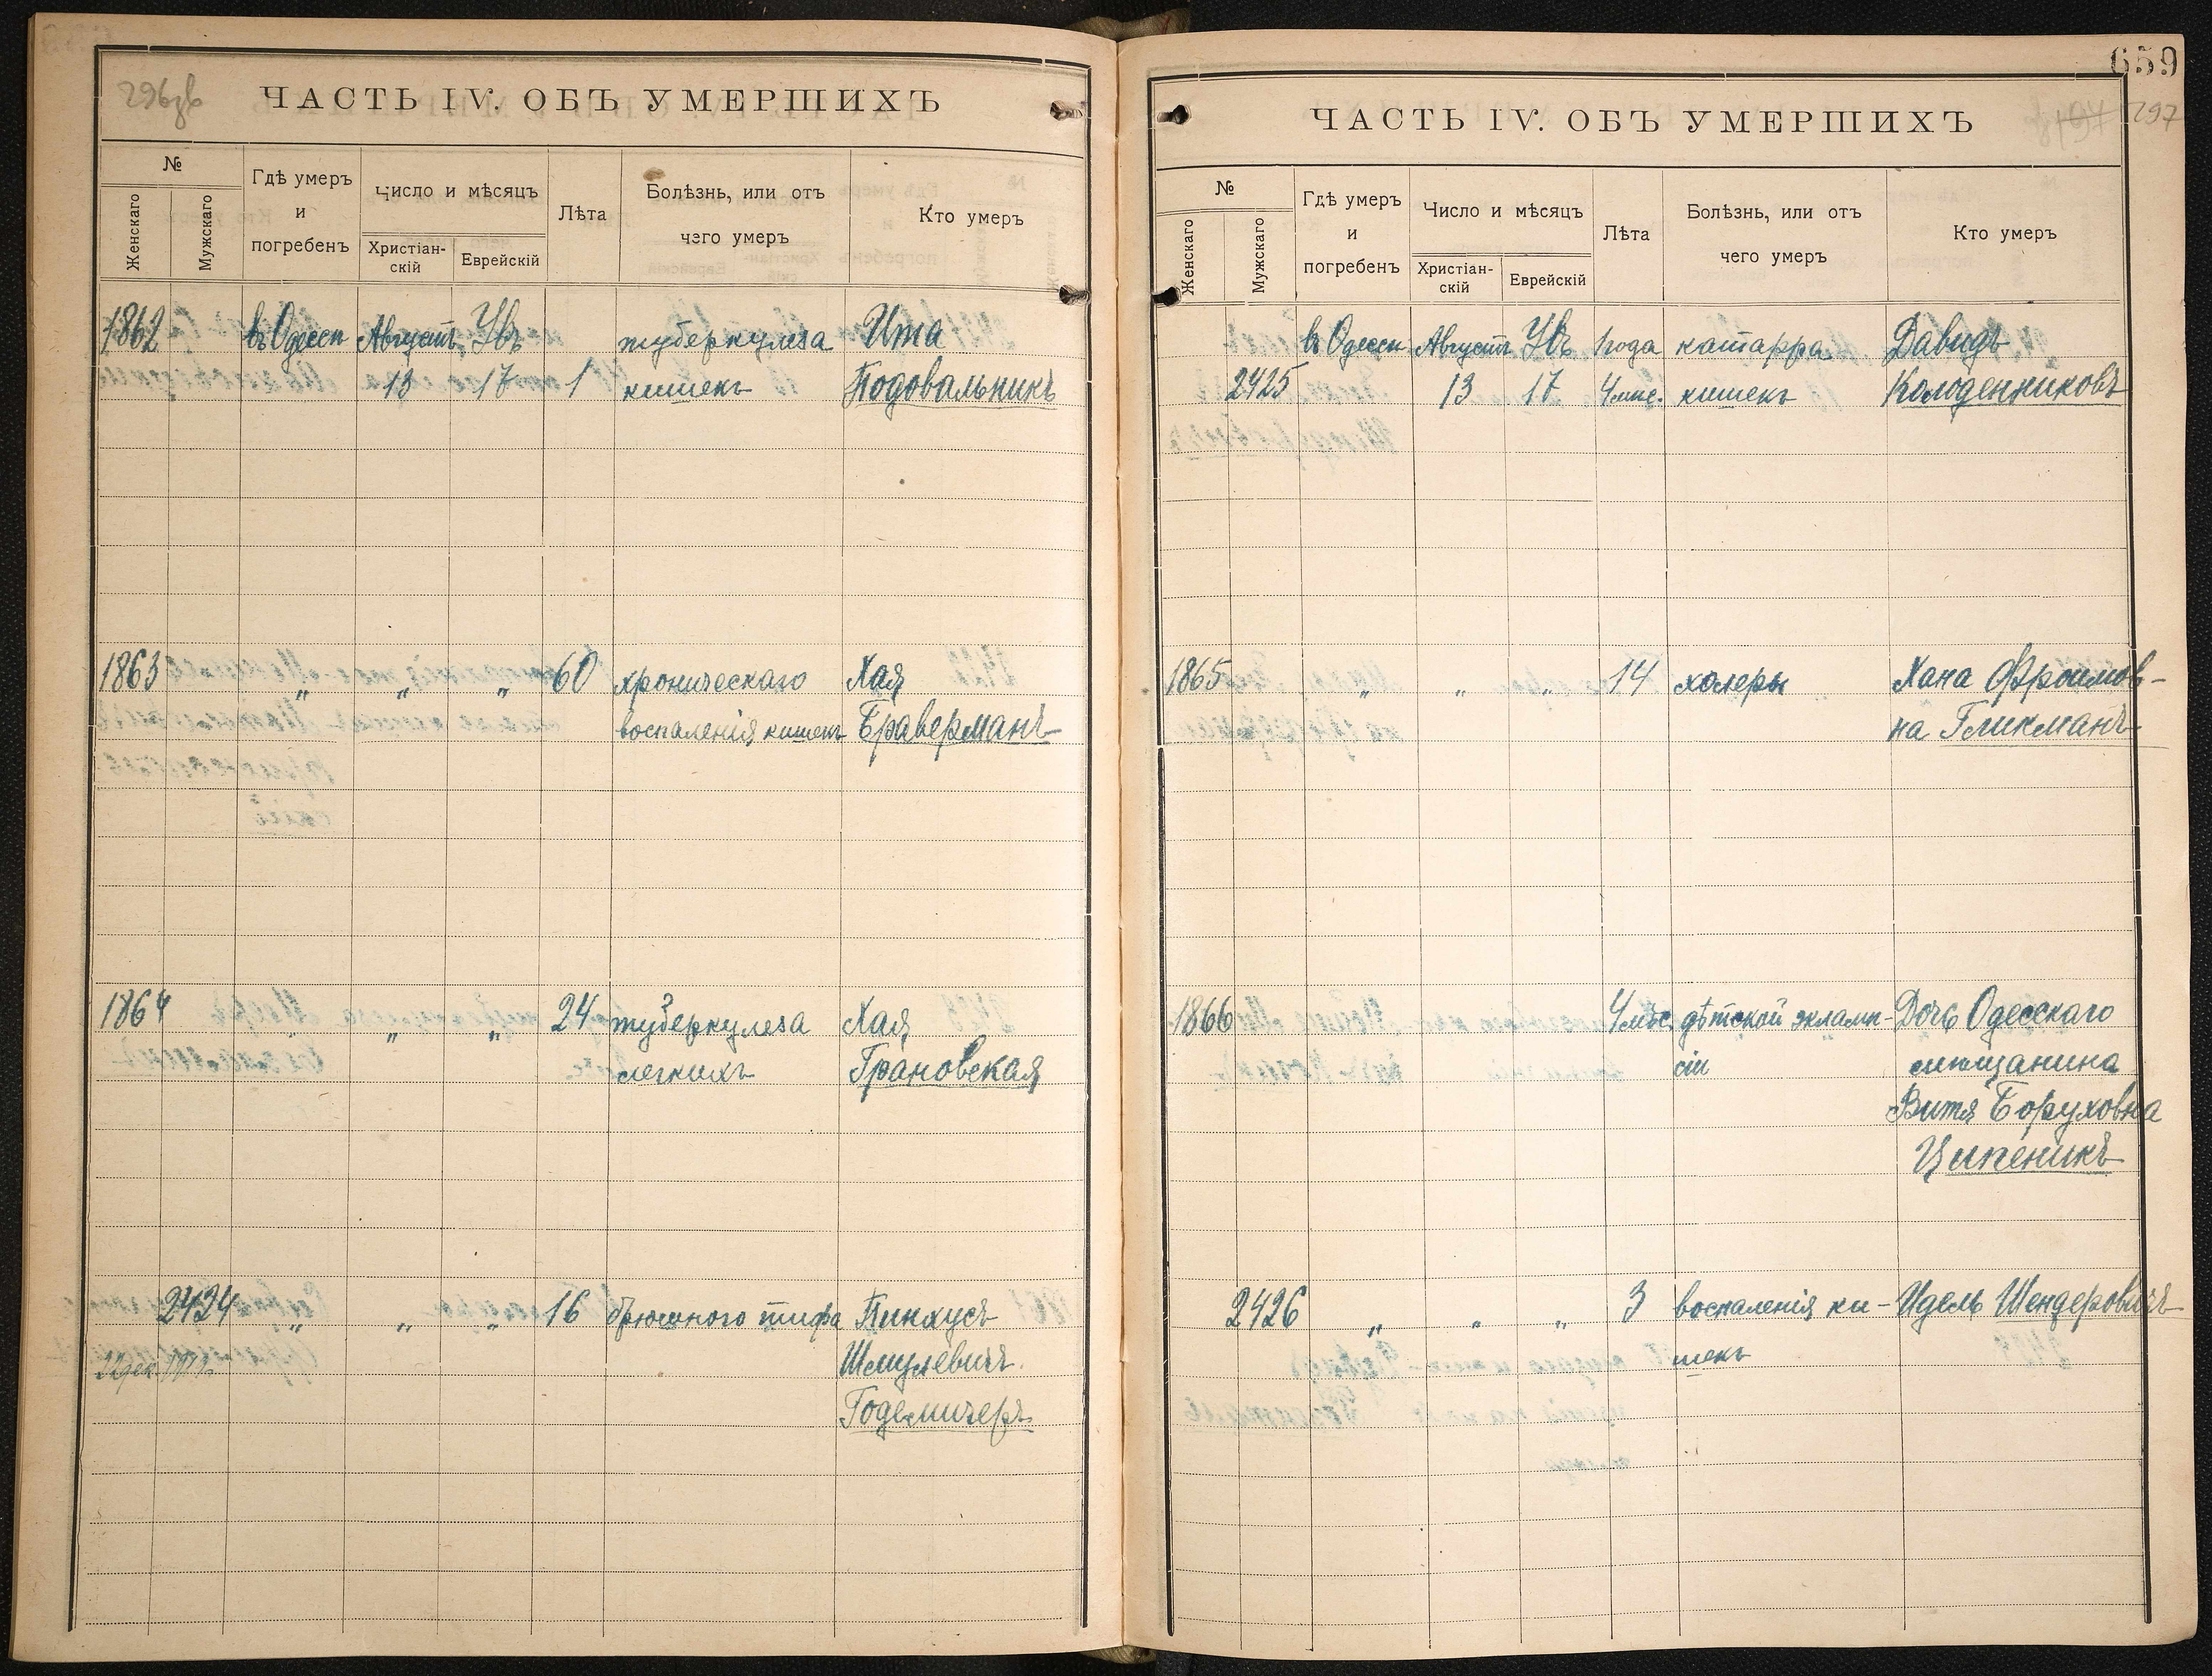 296зв
ЧАСТЬ IV. ОБЪ УМЕРШИХЪ
№
Женскаго
Мужскаго
Гдѣ умеръ
и
погребенъ
Число и мѣсяцъ
Христіан-
скій
Еврейскій
Лѣта
Болѣзнь, или отъ
чего умеръ
Кто умеръ
1862 въ Одессѣ Августъ Увъ туберкулеза Ита
13 17 1 кишекъ Подовальникъ
1863 „ „ „ 60 хроническаго Хая
воспаленія кишекъ Браверманъ
1864 „ „ „ 24 туберкулеза Хая
легкихъ Грановская
2424 „ „ „ 16 брюшного тифа Пинхусъ
Шмулевичъ
Годельничеръ
659
297
ЧАСТЬ IV. ОБЪ УМЕРШИХЪ
№
Женскаго
Мужскаго
Гдѣ умеръ
и
погребенъ
Число и мѣсяцъ
Христіан-
скій
Еврейскій
Лѣта
Болѣзнь, или отъ
чего умеръ
Кто умеръ
въ Одессѣ Августъ Увъ 1 года катарра Давидъ
2425 13 17 4 мѣс. кишекъ Колоденниковъ
1865 „ „ „ 14 холеры Хана Фроимов-
на Гликманъ
1866 4 мѣс. дѣтской эклами-Дочь Одесскаго
сіи мѣщанина
Витя Боруховна
Ципеникъ
2426 „ „ „ 3 воспаленія ки- Идель Шендеровичъ
шекъ